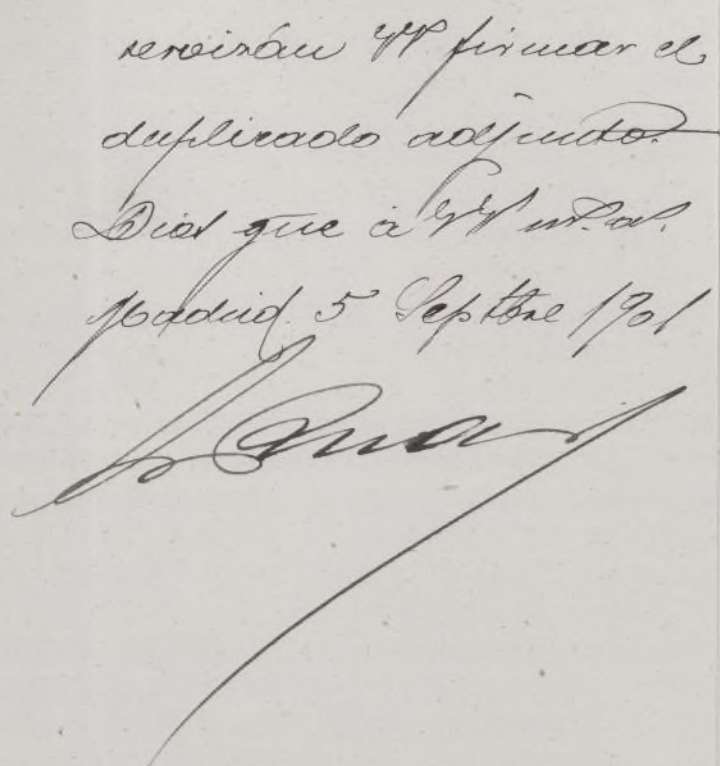 servirán VV firmar el
duplicado adjunto.
Dios gue á VV m.s a.s
Madrid 5 Septbre 1901